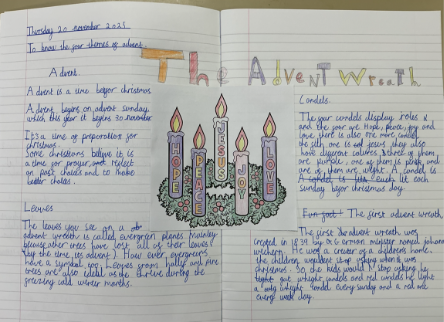 Thursday 20 november 2025
To know the four themes of advent.
The Advent Wreath
Advent.
Advent is a time befor christmas.
Advent begins on advent sunday
which this year it begins 30 november
It's a time of preparation for
christmas.
Some christians belive it is
a time for prayer and reflect
on past choices and to make
better choices.
Leaves
The leaves you see on a
advent wreath is called evergreen plants
other trees have lost all of their leaves
by the time its advent). How ever, evergreens
have a symbol too. Leaves from holly and pine
trees are also ideal as the thrive during the
freezing cold winter months.
HOPE
PEACE
JESUS
JOY
LOVE
Candels
The four candels display roles
and the four are Hope, peace, joy and
love, there is also one more candel,
the fith one is jesus. they also
have different colours 3 of them
are purple, one of them is pink, and
one of them are white. A candel is
lit each
sunday befor christmas day.
Fun fact! The first advent wreath.
The first advent wreath was
created in 1839 by a German minister named johann
wichern. He was a creater of a childrens home.
the children
christmas. So the kids would stop asking he
white candels and red candels he light
a white candel every sunday and a red one
every week day.